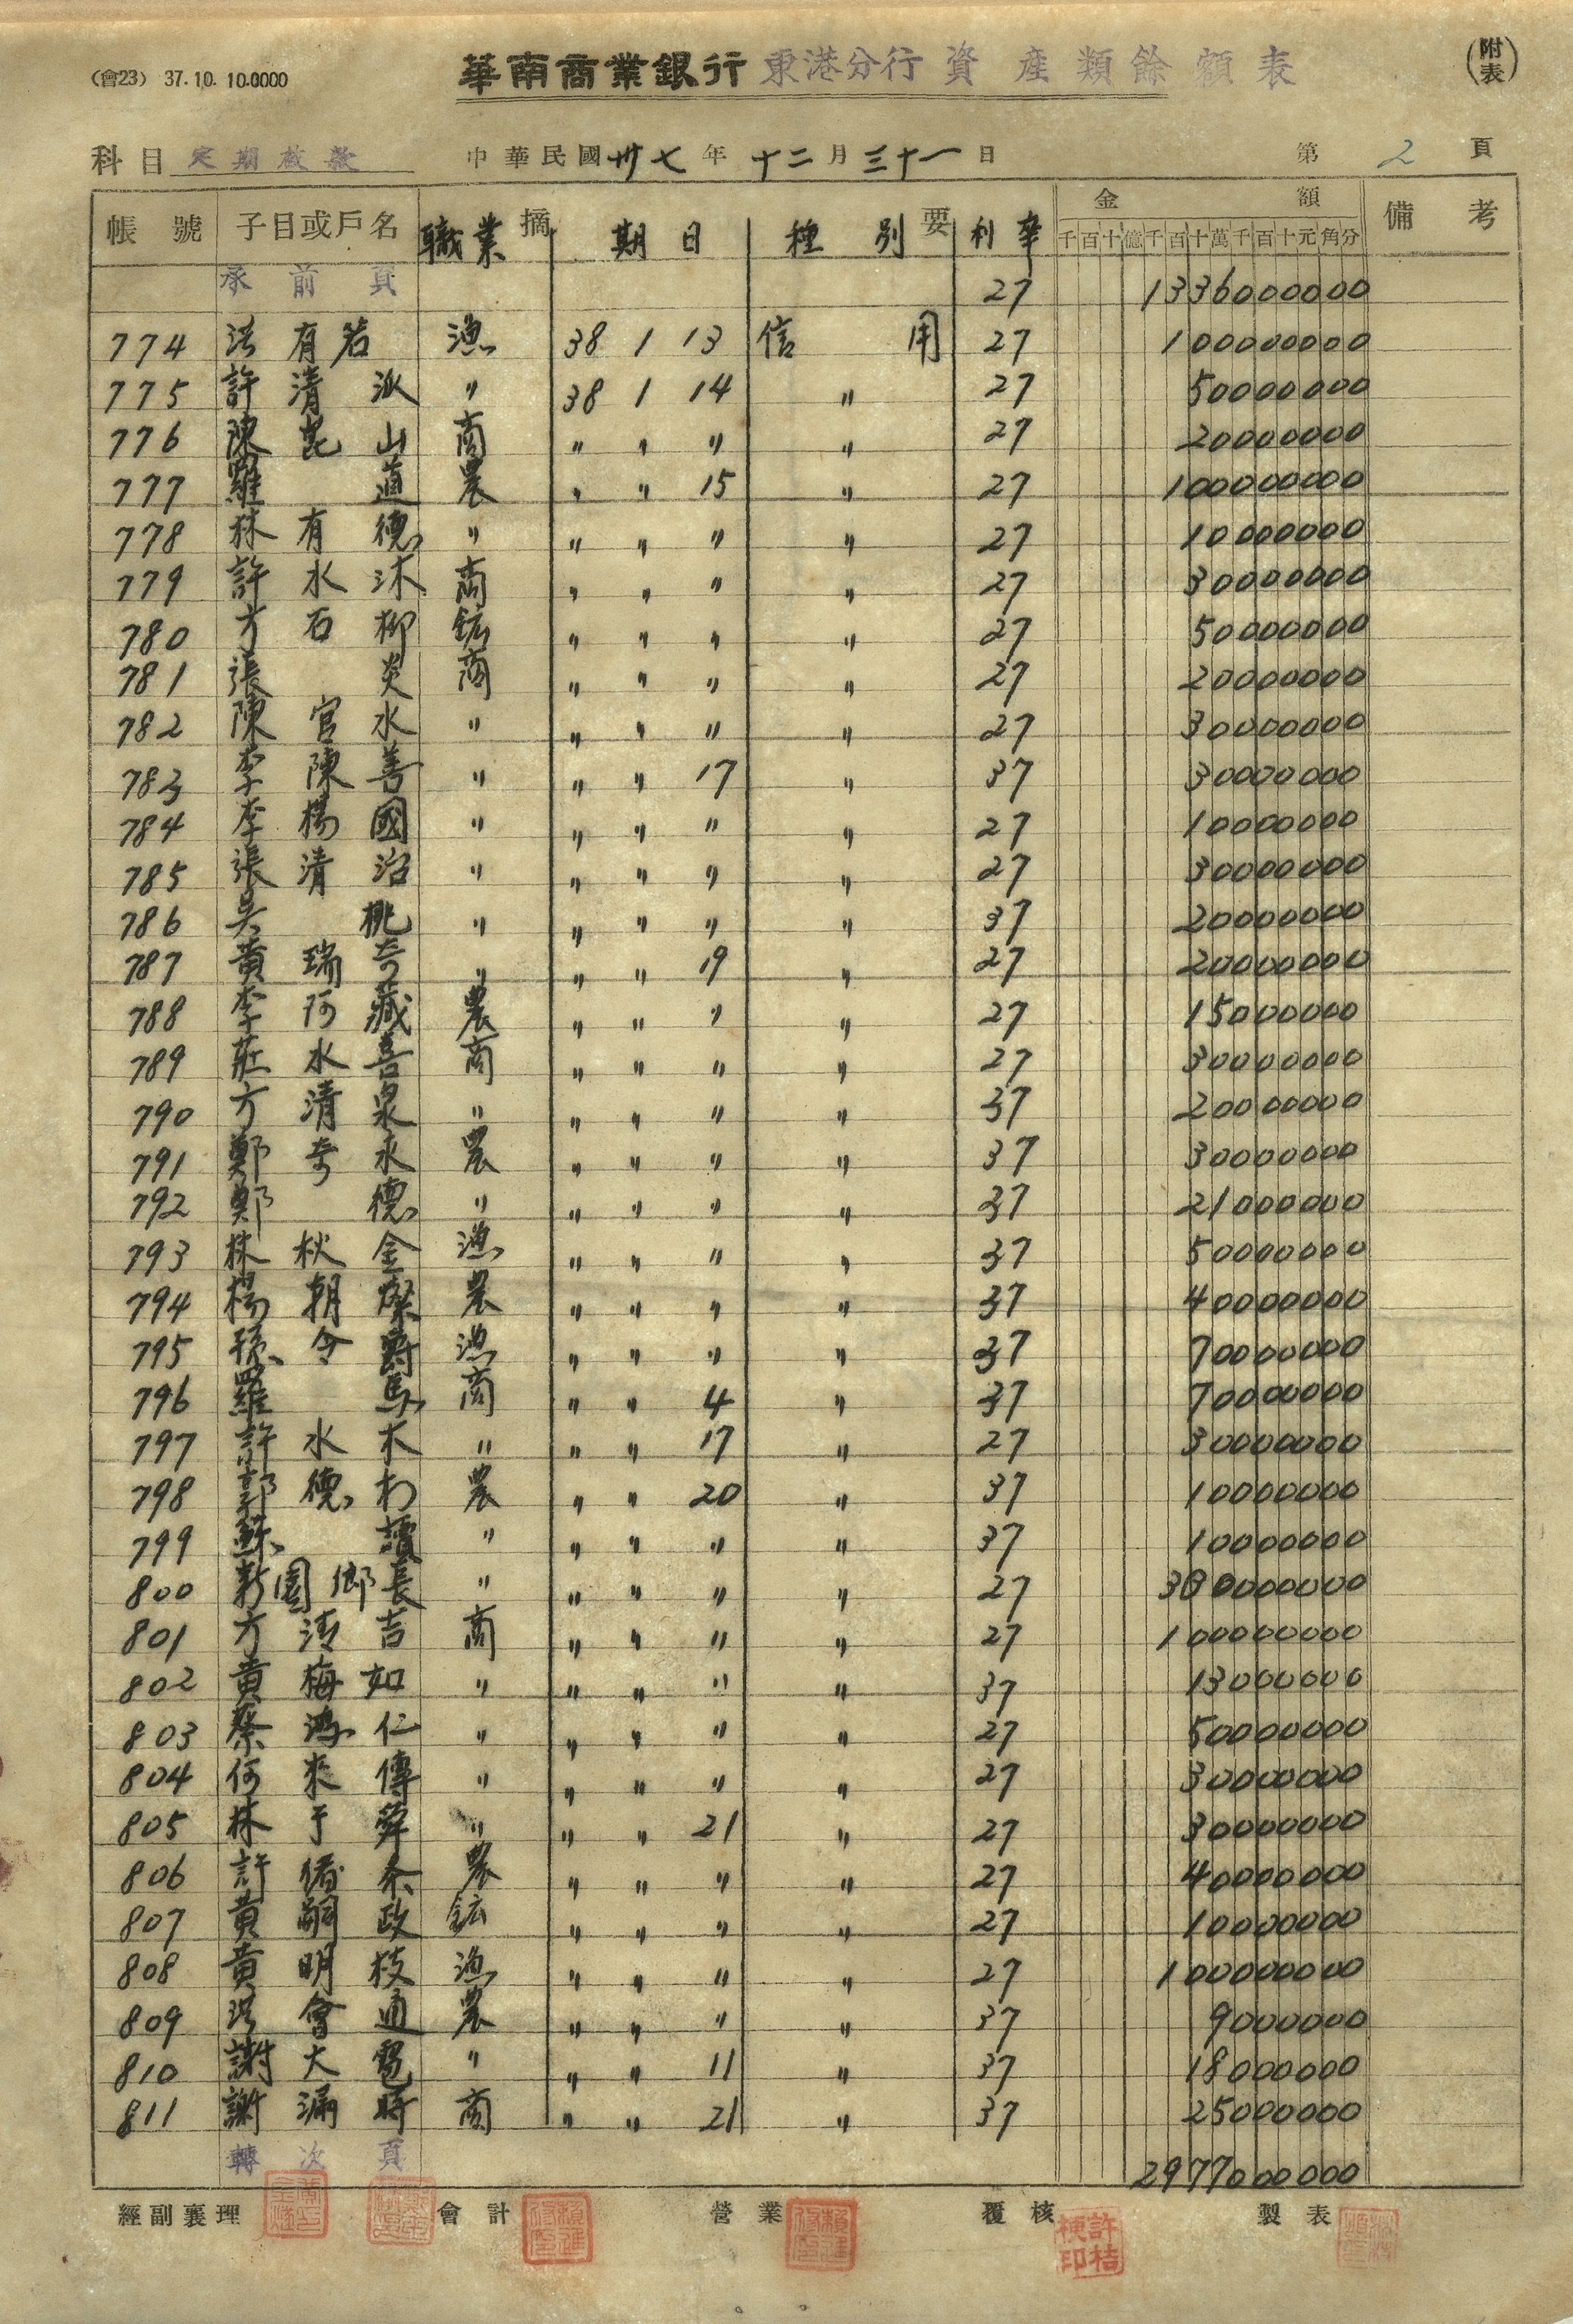 (會23) 37.10. 10.0000
華南商業銀行 東港分行 資產類餘額表
(附表)
科目 定期放款 中華民國卅七年十二月三十一日 第2頁
帳號 子目或戶名 摘要 金額 備考
職業 期日 種別 利率 千百十億千百十萬千百十元角分
承前頁 27 1336000000
774 洪有若 漁 38 1 13 信用 27 100000000
775 許清 〃 38 1 14 〃 27 50000000
776 陳崑山 商 〃 〃 〃 〃 27 20000000
777 羅道 農 〃 〃 15 〃 27 100000000
778 林有德 〃 〃 〃 〃 〃 27 10000000
779 許水沐 商 〃 〃 〃 〃 27 30000000
780 方石柳 鉱 〃 〃 〃 〃 27 50000000
781 張炎 商 〃 〃 〃 〃 27 20000000
782 陳官水 〃 〃 〃 〃 〃 27 30000000
783 李陳善 〃 〃 〃 17 〃 37 30000000
784 李楊國 〃 〃 〃 〃 〃 27 10000000
785 張清沼 〃 〃 〃 〃 〃 27 30000000
786 吳桃 〃 〃 〃 〃 〃 37 20000000
787 黃瑞奇 〃 〃 〃 19 〃 27 20000000
788 李阿藏 農 〃 〃 〃 〃 27 15000000
789 莊水喜 商 〃 〃 〃 〃 27 30000000
790 方清泉 〃 〃 〃 〃 〃 37 20000000
791 鄭奇永 農 〃 〃 〃 〃 37 30000000
792 鄭德 〃 〃 〃 〃 〃 37 21000000
793 林秋金 漁 〃 〃 〃 〃 37 50000000
794 楊朝燦 農 〃 〃 〃 〃 37 40000000
795 孫令爵 漁 〃 〃 〃 〃 37 70000000
796 羅馬 商 〃 〃 4 〃 37 70000000
797 許水木 〃 〃 〃 17 〃 27 30000000
798 郭德 農 〃 〃 20 〃 37 10000000
799 蘇讀 〃 〃 〃 〃 〃 37 10000000
800 新園鄉長 〃 〃 〃 〃 〃 27 300000000
801 方清吉 商 〃 〃 〃 〃 27 100000000
802 黃梅如 〃 〃 〃 〃 〃 37 13000000
803 蔡鴻仁 〃 〃 〃 〃 〃 27 50000000
804 何來傳 〃 〃 〃 〃 〃 27 30000000
805 林于舜 〃 〃 〃 21 〃 27 30000000
806 許 農 〃 〃 〃 〃 27 40000000
807 黃嗣政 鉱 〃 〃 〃 〃 27 10000000
808 黃明枝 漁 〃 〃 〃 〃 27 100000000
809 洪會通 農 〃 〃 〃 〃 37 9000000
810 謝大 〃 〃 〃 11 〃 37 18000000
811 謝滿時 商 〃 〃 21 〃 37 25000000
轉次頁 2977000000
經副襄理 會計 營業 覆核 製表
許桔梗印